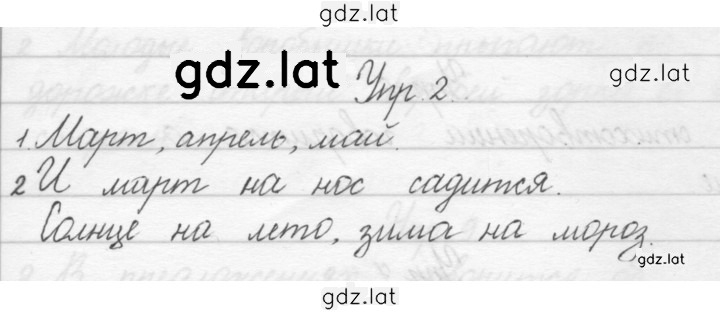 gdz.lat
gdz.lat
Упр. 2.
gdz.lat
1 Март, апрель, май.
2 И март на нос садится.
Солнце на лето, зима на мороз.
gdz.lat
gdz.lat